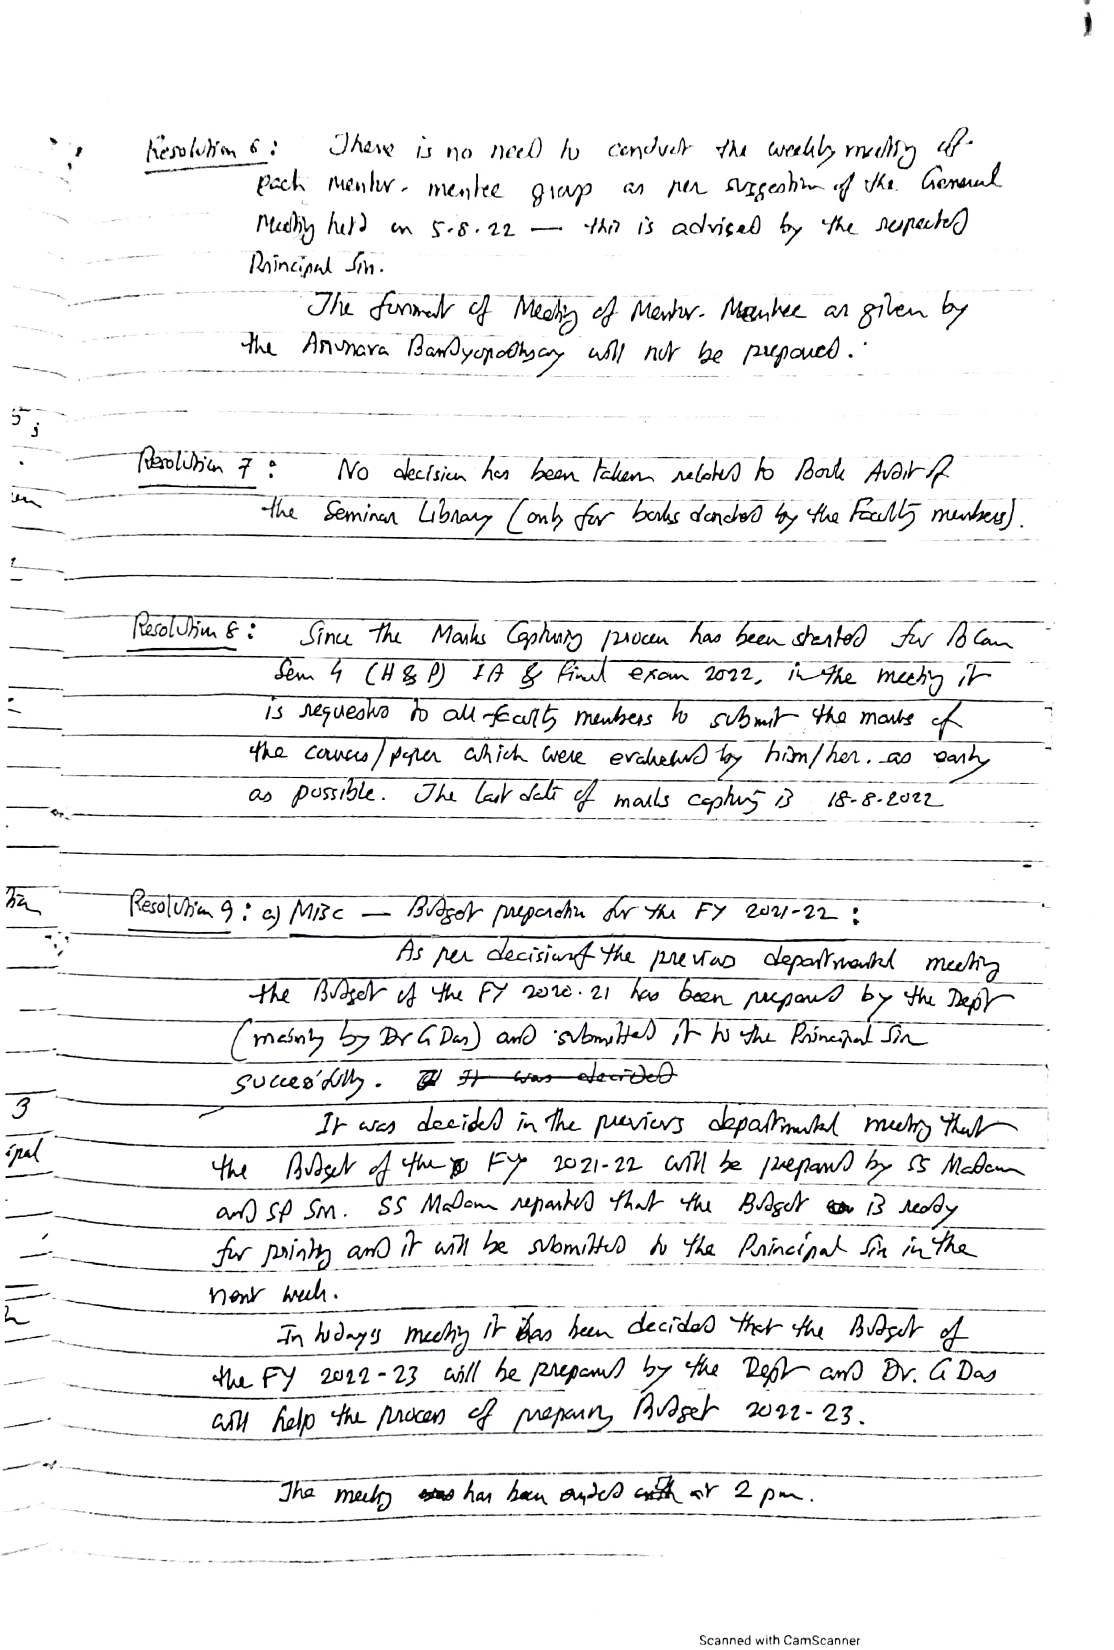 Resolution 6: There is no need to conduct the weekly meeting of
each mentor-mentee group as per suggestion of the General
Meeting held on 5.8.22 — this is advised by the respected
Principal Sir.
The format of Meeting of Mentor-Mentee as given by
the Bandyopadhyay will not be prepared.
Resolution 7: No decision has been taken related to Book Audit of
the Seminar Library (only for books donated by the Faculty members).
Resolution 8: Since the Marks Capturing process has been started for B Com
Sem 4 (H & P) IA & Final exam 2022, in the meeting it
is requested to all faculty members to submit the marks of
the courses/paper which were evaluated by him/her. as early
as possible. The last date of marks capturing is 18-8-2022
Resolution 9: a) Misc — Budget preparation for the FY 2021-22:
As per decision of the previous departmental meeting
the Budget of the FY 2020-21 has been prepared by the Dept
(mainly by Dr G Das) and submitted it to the Principal Sir
successfully. It was decided
It was decided in the previous departmental meeting that
the Budget of the FY 2021-22 will be prepared by SS Madam
and SP Sir. SS Madam reported that the Budget is ready
for printing and it will be submitted to the Principal Sir in the
next week.
In today's meeting it has been decided that the Budget of
the FY 2022-23 will be prepared by the Dept and Dr. G Das
will help the process of preparing Budget 2022-23.
The meeting was has been ended with at 2 pm.
Scanned with CamScanner